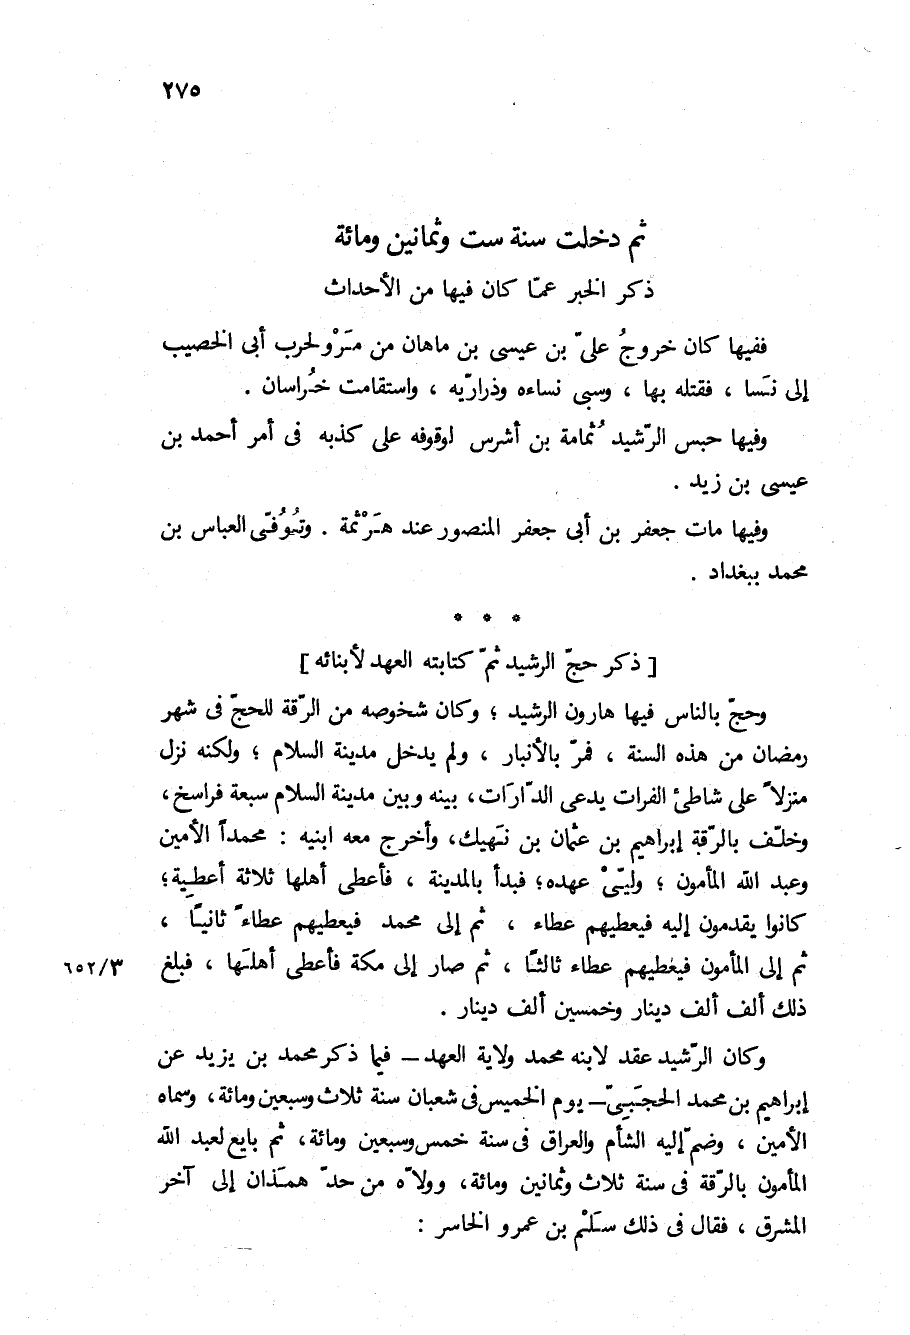 ٢٧٥
ثم دخلت سنة ست وثمانين ومائة
ذكر الخبر عمّا كان فيها من الأحداث
ففيها كان خروجُ علىّ بن عيسى بن ماهان من مَرْو لحرب أبى الخصيب
إلى نَسا ، فقتله بها ، وسبى نساءه وذراريّه ، واستقامت خُراسان .
وفيها حبس الرّشيد ثُمامة بن أشرس لوقوفه على كذبه فى أمر أحمد بن
عيسى بن زيد .
وفيها مات جعفر بن أبى جعفر المنصور عند هَرْثمة . وتُوُفّى العباس بن
محمد ببغداد .
* * *
[ ذكر حجّ الرشيد ثمّ كتابته العهد لأبنائه ]
وحجّ بالناس فيها هارون الرشيد ؛ وكان شخوصه من الرّقة للحجّ فى شهر
رمضان من هذه السنة ، فمرّ بالأنبار ، ولم يدخل مدينة السلام ؛ ولكنه نزل
منزلاً على شاطئ الفرات يدعى الدّارات، بينه وبين مدينة السلام سبعة فراسخ،
وخلّف بالرّقة إبراهيم بن عثمان بن نَهيك، وأخرج معه ابنيه : محمداً الأمين
وعبد الله المأمون ؛ وليّىْ عهده؛ فبدأ بالمدينة ، فأعطى أهلها ثلاثة أعطية؛
كانوا يقدمون إليه فيعطيهم عطاء ، ثم إلى محمد فيعطيهم عطاءً ثانيًا ،
ثم إلى المأمون فيعطيهم عطاء ثالثًا ، ثم صار إلى مكة فأعطى أهلَها ، فبلغ
٦٥٢/٣
ذلك ألف ألف دينار وخمسين ألف دينار .
وكان الرّشيد عقد لابنه محمد ولاية العهد – فيما ذكر محمد بن يزيد عن
إبراهيم بن محمد الحجَبىّ – يوم الخميس فى شعبان سنة ثلاث وسبعين ومائة، وسماه
الأمين ، وضمّ إليه الشأم والعراق فى سنة خمس وسبعين ومائة، ثم بايع لعبد الله
المأمون بالرّقة فى سنة ثلاث وثمانين ومائة، وولاّه من حدّ همَذان إلى آخر
المشرق ، فقال فى ذلك سَلْم بن عمرو الخاسر :